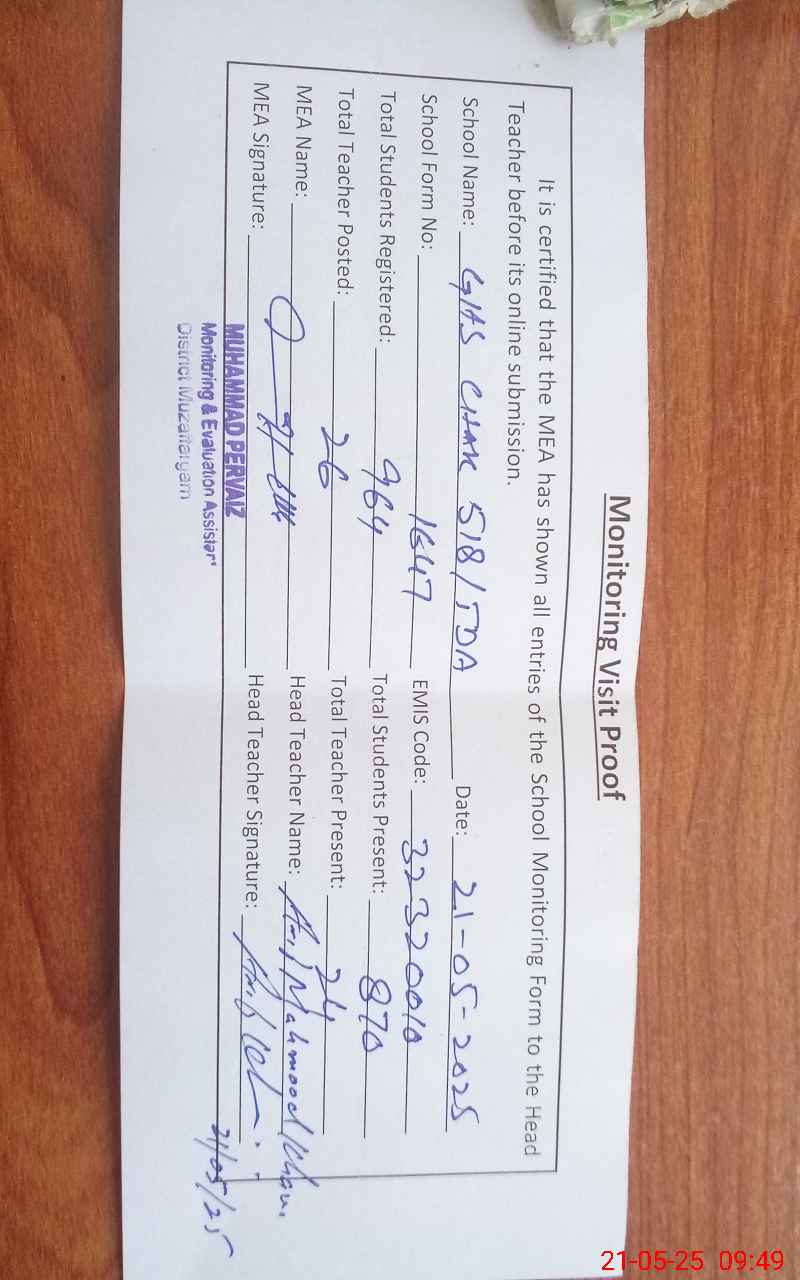 Monitoring Visit Proof
It is certified that the MEA has shown all entries of the School Monitoring Form to the Head
Teacher before its online submission.
School Name: GHS CHAK 518/TDA Date: 21-05-2025
School Form No: 1647 EMIS Code: 32320010
Total Students Registered: 964 Total Students Present: 870
Total Teacher Posted: 26 Total Teacher Present: 24
MEA Name: Head Teacher Name: Mahmood Khan.
MEA Signature: Head Teacher Signature:
21/05/25
MUHAMMAD PERVAIZ
Monitoring & Evaluation Assistant
District Muzaffargarh
21-05-25 09:49